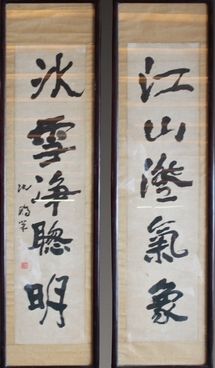 江山澄氣象
冰雪淨聰明